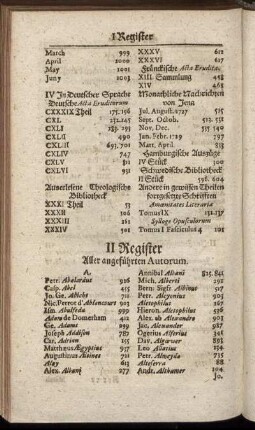 I Register
March 999
April 1000
May 1001
Juny 1003
IV In Deutscher Sprache
Deutsche Acta Eruditorum
CXXXIX Theil 175, 156
CXL 131, 247
CXLI
CXLII 490
CXLIII 693, 701
CXLIV 747
CXLV 840
CXLVI 951
Auserlesene Theologische
Bibliotheck
XXXI Theil 53
XXXII 106
XXXIII 261
XXXIV 501
XXXV 612
XXXVI 617
Fränckische Acta Erudita
XIII. Sammlung 458
XIV 468
Monathliche Nachrichten
von Jena
Jul. August. 1727 515
Sept. Octob. 533, 551
Nov. Dec. 535, 540
Jan. Febr. 1729 797
Mart. April 813
Hamburgische Auszüge
IV Stück 300
Schwedische Bibliotheck
II Stück 596, 604
Andere in gewissen Theilen
fortgesetzte Schrifften
Amœnitates Litterariæ
Tomus IX 131, 137
Sylloge Opusculorum
Tomus I Fasciculus 4 101
II Register
Aller angeführten Autorum.
A.
Petr. Abælardus 916
Culp. Abel 455
Jo. Ge. Abicht 710
Nic. Perrot d'Ablancourt 905
Ism. Abulfeda 939
Adam de Domerham 412
Ge. Adams 999
Joseph Addison 787
Car. Adrien 155
Matthæus Ægyptius 957
Augustinus 710
Alay 936
Alex. Albani 717
Annibal Albani 825, 841
Mich. Alberti 392
Bern. Sigfr. Albinus 507
Petr. Alcyonius 905
Aletophilus 267
Hieron. Aletophilus 536
Alex. ab Alexandro 905
Jac. Alexander 907
Ogerius Alferius 306
Dav. Algöwer 881
Leo Allatius 130
Petr. Almeyda 735
Alteserra 788
Andr. Althamer 104
Jo.